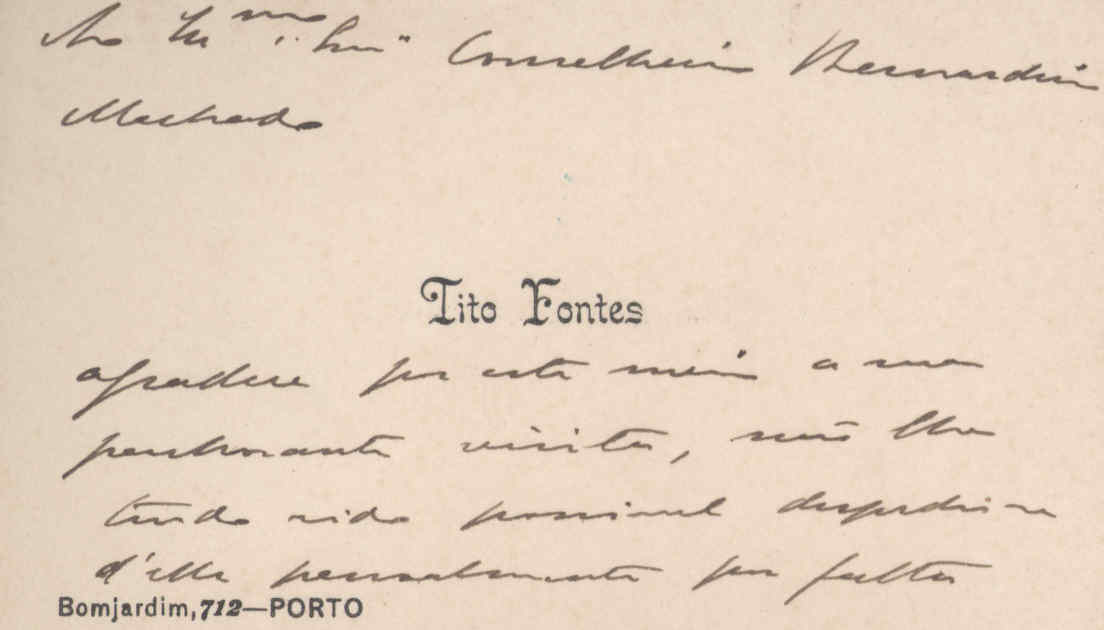 Ao Ill.mo Snr. Conselheiro Bernardino
Machado
Tito Fontes
agradece por este meio a sua
penhorante visita, não lhe
tendo sido possivel despedir-se
d'elle pessoalmente por falta
Bomjardim, 712—PORTO